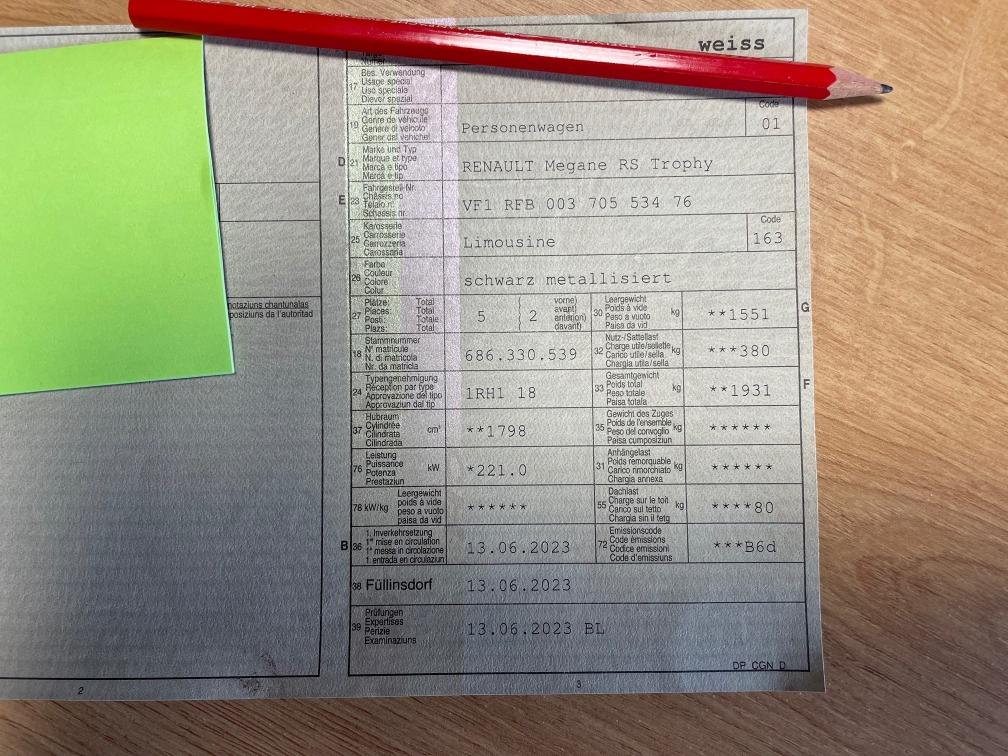 weiss
17 Bes. Verwendung
Usage spécial
Uso speciale
Diever spezial
19 Art des Fahrzeugs
Genre de véhicule
Genere di veicolo
Gener dal vehichel
Personenwagen
Code
01
D 21 Marke und Typ
Marque et type
Marca e tipo
Marca e tip
RENAULT Megane RS Trophy
E 23 Fahrgestell-Nr.
Châssis no
Telaio n.
Schassis nr.
VF1 RFB 003 705 534 76
25 Karosserie
Carrosserie
Carrozzeria
Carossaria
Limousine
Code
163
26 Farbe
Couleur
Colore
Colur
schwarz metallisiert
27 Plätze: Total
Places: Total
Posti: Totale
Plazs: Total
5 2 vorne)
avant)
anteriori)
davant)
30 Leergewicht
Poids à vide
Peso a vuoto
Paisa da vid
kg **1551 G
18 Stammnummer
N° matricule
N. di matricola
Nr. da matricla
686.330.539
32 Nutz-/Sattellast
Charge utile/sellette
Carico utile/sella
Chargia utila/sella
kg ***380
24 Typengenehmigung
Réception par type
Approvazione del tipo
Approvaziun dal tip
1RH1 18
33 Gesamtgewicht
Poids total
Peso totale
Paisa totala
kg **1931 F
37 Hubraum
Cylindrée
Cilindrata
Cilindrada
cm³ **1798
35 Gewicht des Zuges
Poids de l'ensemble
Peso del convoglio
Paisa cumposiziun
kg ******
76 Leistung
Puissance
Potenza
Prestaziun
kW *221.0
31 Anhängelast
Poids remorquable
Carico rimorchiato
Chargia annexa
kg ******
78 kW/kg Leergewicht
poids à vide
peso a vuoto
paisa da vid
******
55 Dachlast
Charge sur le toit
Carico sul tetto
Chargia sin il tetg
kg ****80
B 36 1. Inverkehrsetzung
1re mise en circulation
1a messa in circolazione
1. entrada en circulaziun
13.06.2023
72 Emissionscode
Code émissions
Codice emissioni
Code d'emissiuns
***B6d
38 Füllinsdorf 13.06.2023
39 Prüfungen
Expertises
Perizie
Examinaziuns
13.06.2023 BL
DP CGN D
3
notaziuns chantunalas
posiziuns da l'autoritad
2